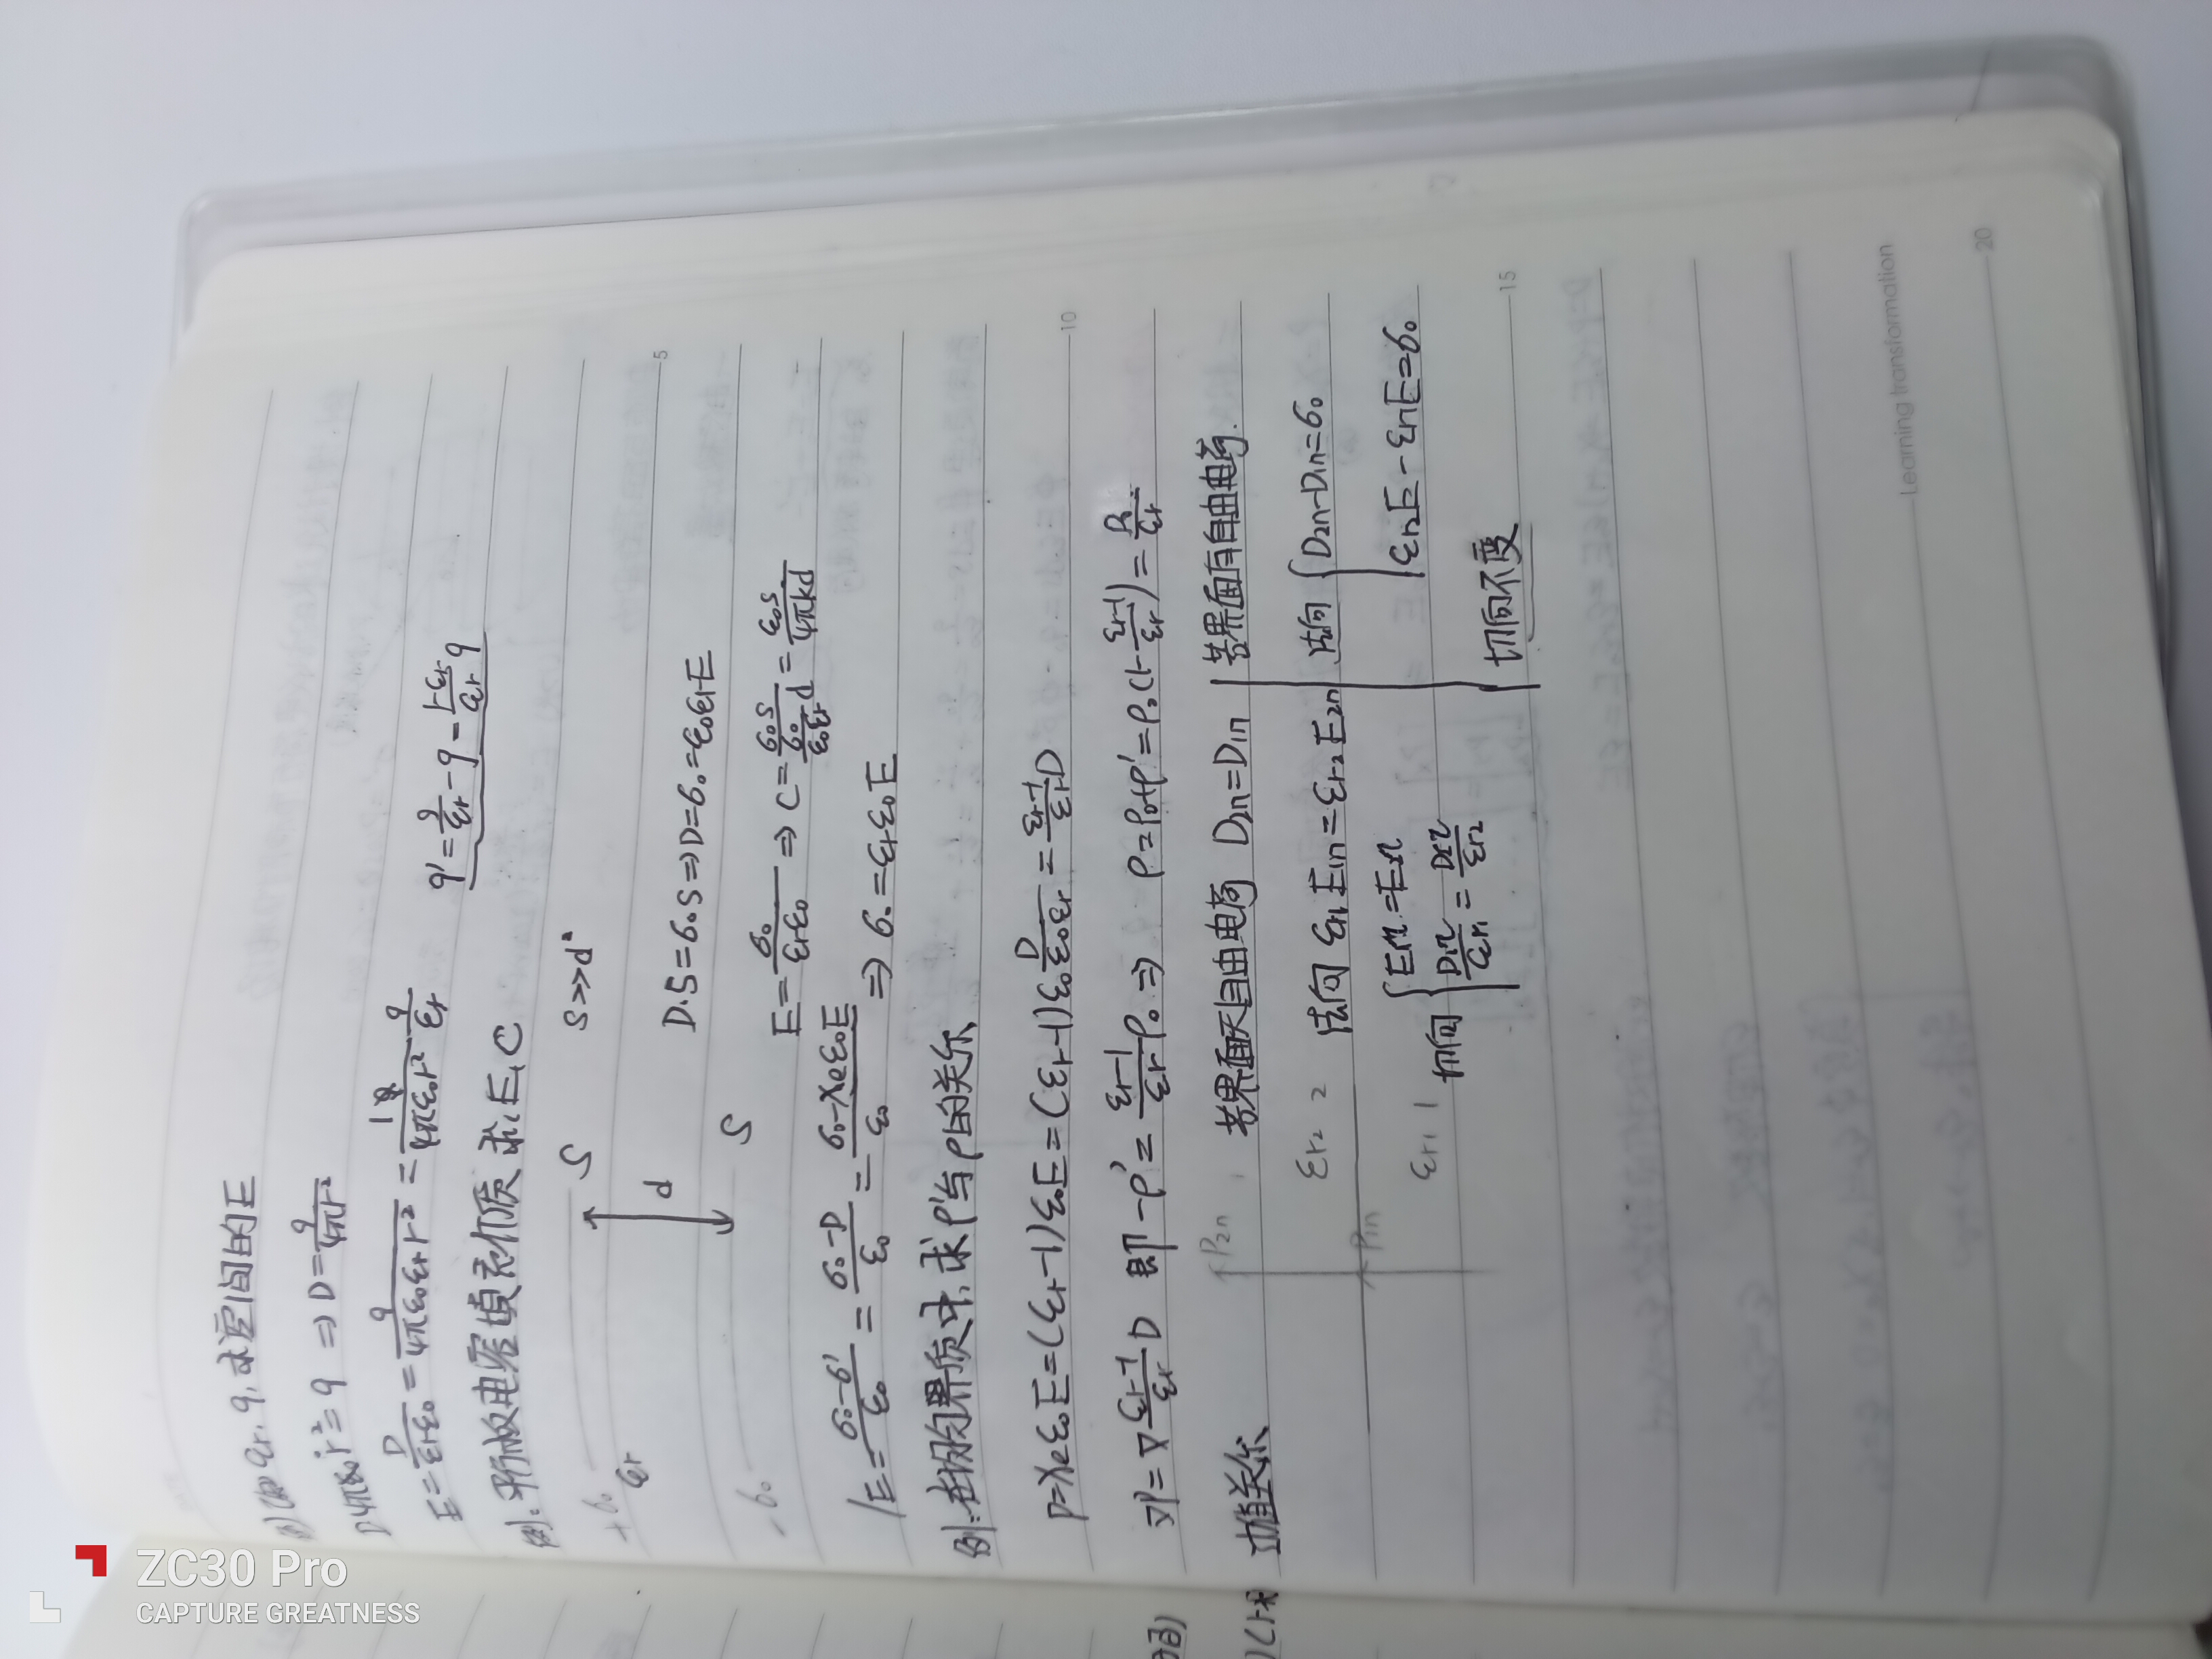 例:如εr.q,求空间的E
D4πε₀r²=q ⇒ D=q/4πr²
E=D/εrε₀=q/4πε₀εrr²=1/4πε₀r² q/εr
q'=q/εr-q=1-εr/εr q
例:平板电容填充介质求E,C
+σ₀ S S>>d²
εr d
-σ₀ S
D·S=σ₀S⇒D=σ₀=ε₀εrE
E=σ₀/εrε₀ ⇒ C=σ₀S/(σ₀/ε₀εr d)=ε₀S/4πkd
E=σ₀-σ'/ε₀=σ₀-P/ε₀=σ₀-χeε₀E/ε₀ ⇒σ₀=εrε₀E
例:在均匀界质中,求ρ'与ρ的关系
P=χeε₀E=(εr-1)ε₀E=(εr-1)ε₀ D/ε₀εr=εr-1/εr D
∇P=∇ εr-1/εr D 即-ρ'=εr-1/εr ρ₀⇒ ρ=ρ₀+ρ'=ρ₀(1-εr-1/εr)=ρ₀/εr
边值关系
P₂n
εr₂ 2
P₁n
εr₁ 1
若界面无自由电荷 D₂n=D₁n
法向 εr₁E₁n=εr₂E₂n
切向 { E₁τ=E₂τ
D₁τ/εr₁=D₂τ/εr₂
若界面有自由电荷.
法向 { D₂n-D₁n=σ₀
εr₂E-εr₁E=σ₀
切向不变
5
10
15
20
Learning transformation
ZC30 Pro
CAPTURE GREATNESS